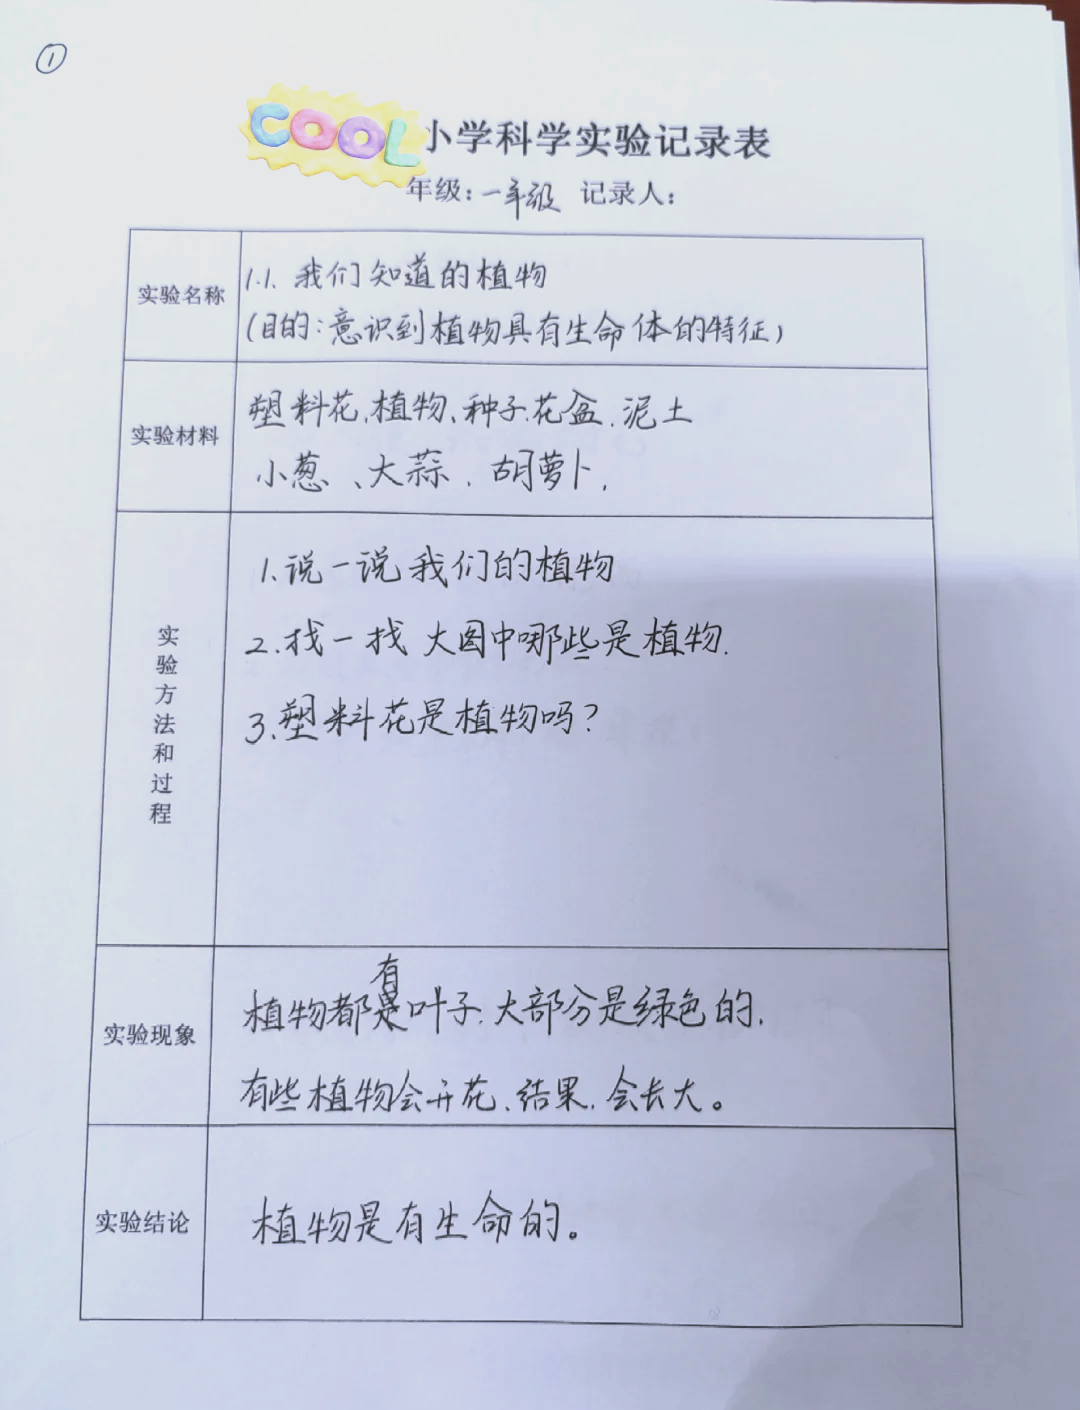 ①
COOL小学科学实验记录表
年级:一年级 记录人:
实验名称
1.1. 我们知道的植物
(目的:意识到植物具有生命体的特征)
实验材料
塑料花、植物、种子、花盆、泥土
小葱、大蒜、胡萝卜,
实验方法和过程
1.说一说我们的植物
2.找一找大图中哪些是植物.
3.塑料花是植物吗?
实验现象
有
植物都是叶子.大部分是绿色的,
有些植物会开花、结果,会长大。
实验结论
植物是有生命的。